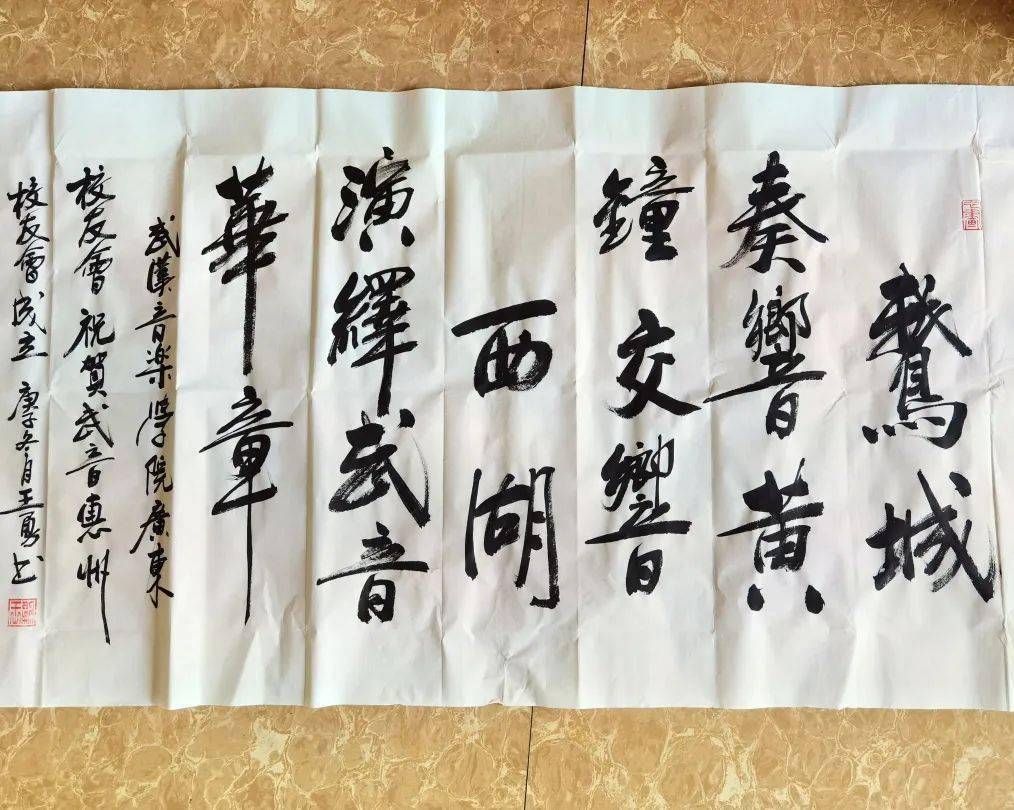 鵞城
奏響黃
鐘交響
西湖
演繹武音
華章
武漢音楽學院廣東
校友會祝賀武音惠州
校友會成立 庚子冬月王勇书